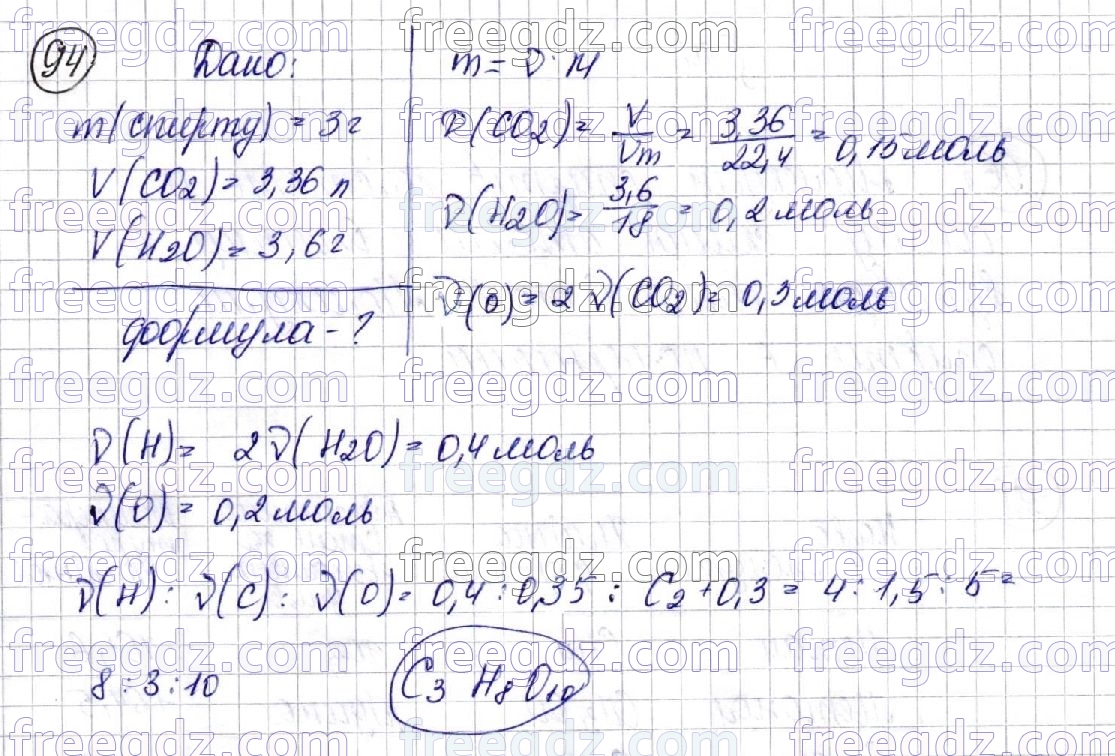 94 Дано:
m(спирту) = 3г
V(CO2) = 3,36 л
V(H2O) = 3,6г
формула - ?
m = ν · M
ν(CO2) = V/Vm = 3,36/22,4 = 0,15 моль
ν(H2O) = 3,6/18 = 0,2 моль
ν(O) = 2 ν(CO2) = 0,3 моль
ν(H) = 2ν(H2O) = 0,4 моль
ν(O) = 0,2 моль
ν(H) : ν(C) : ν(O) = 0,4 : 0,35 : C2 + 0,3 = 4 : 1,5 : 5 =
8 : 3 : 10
C3 H8 O10
freegdz.com